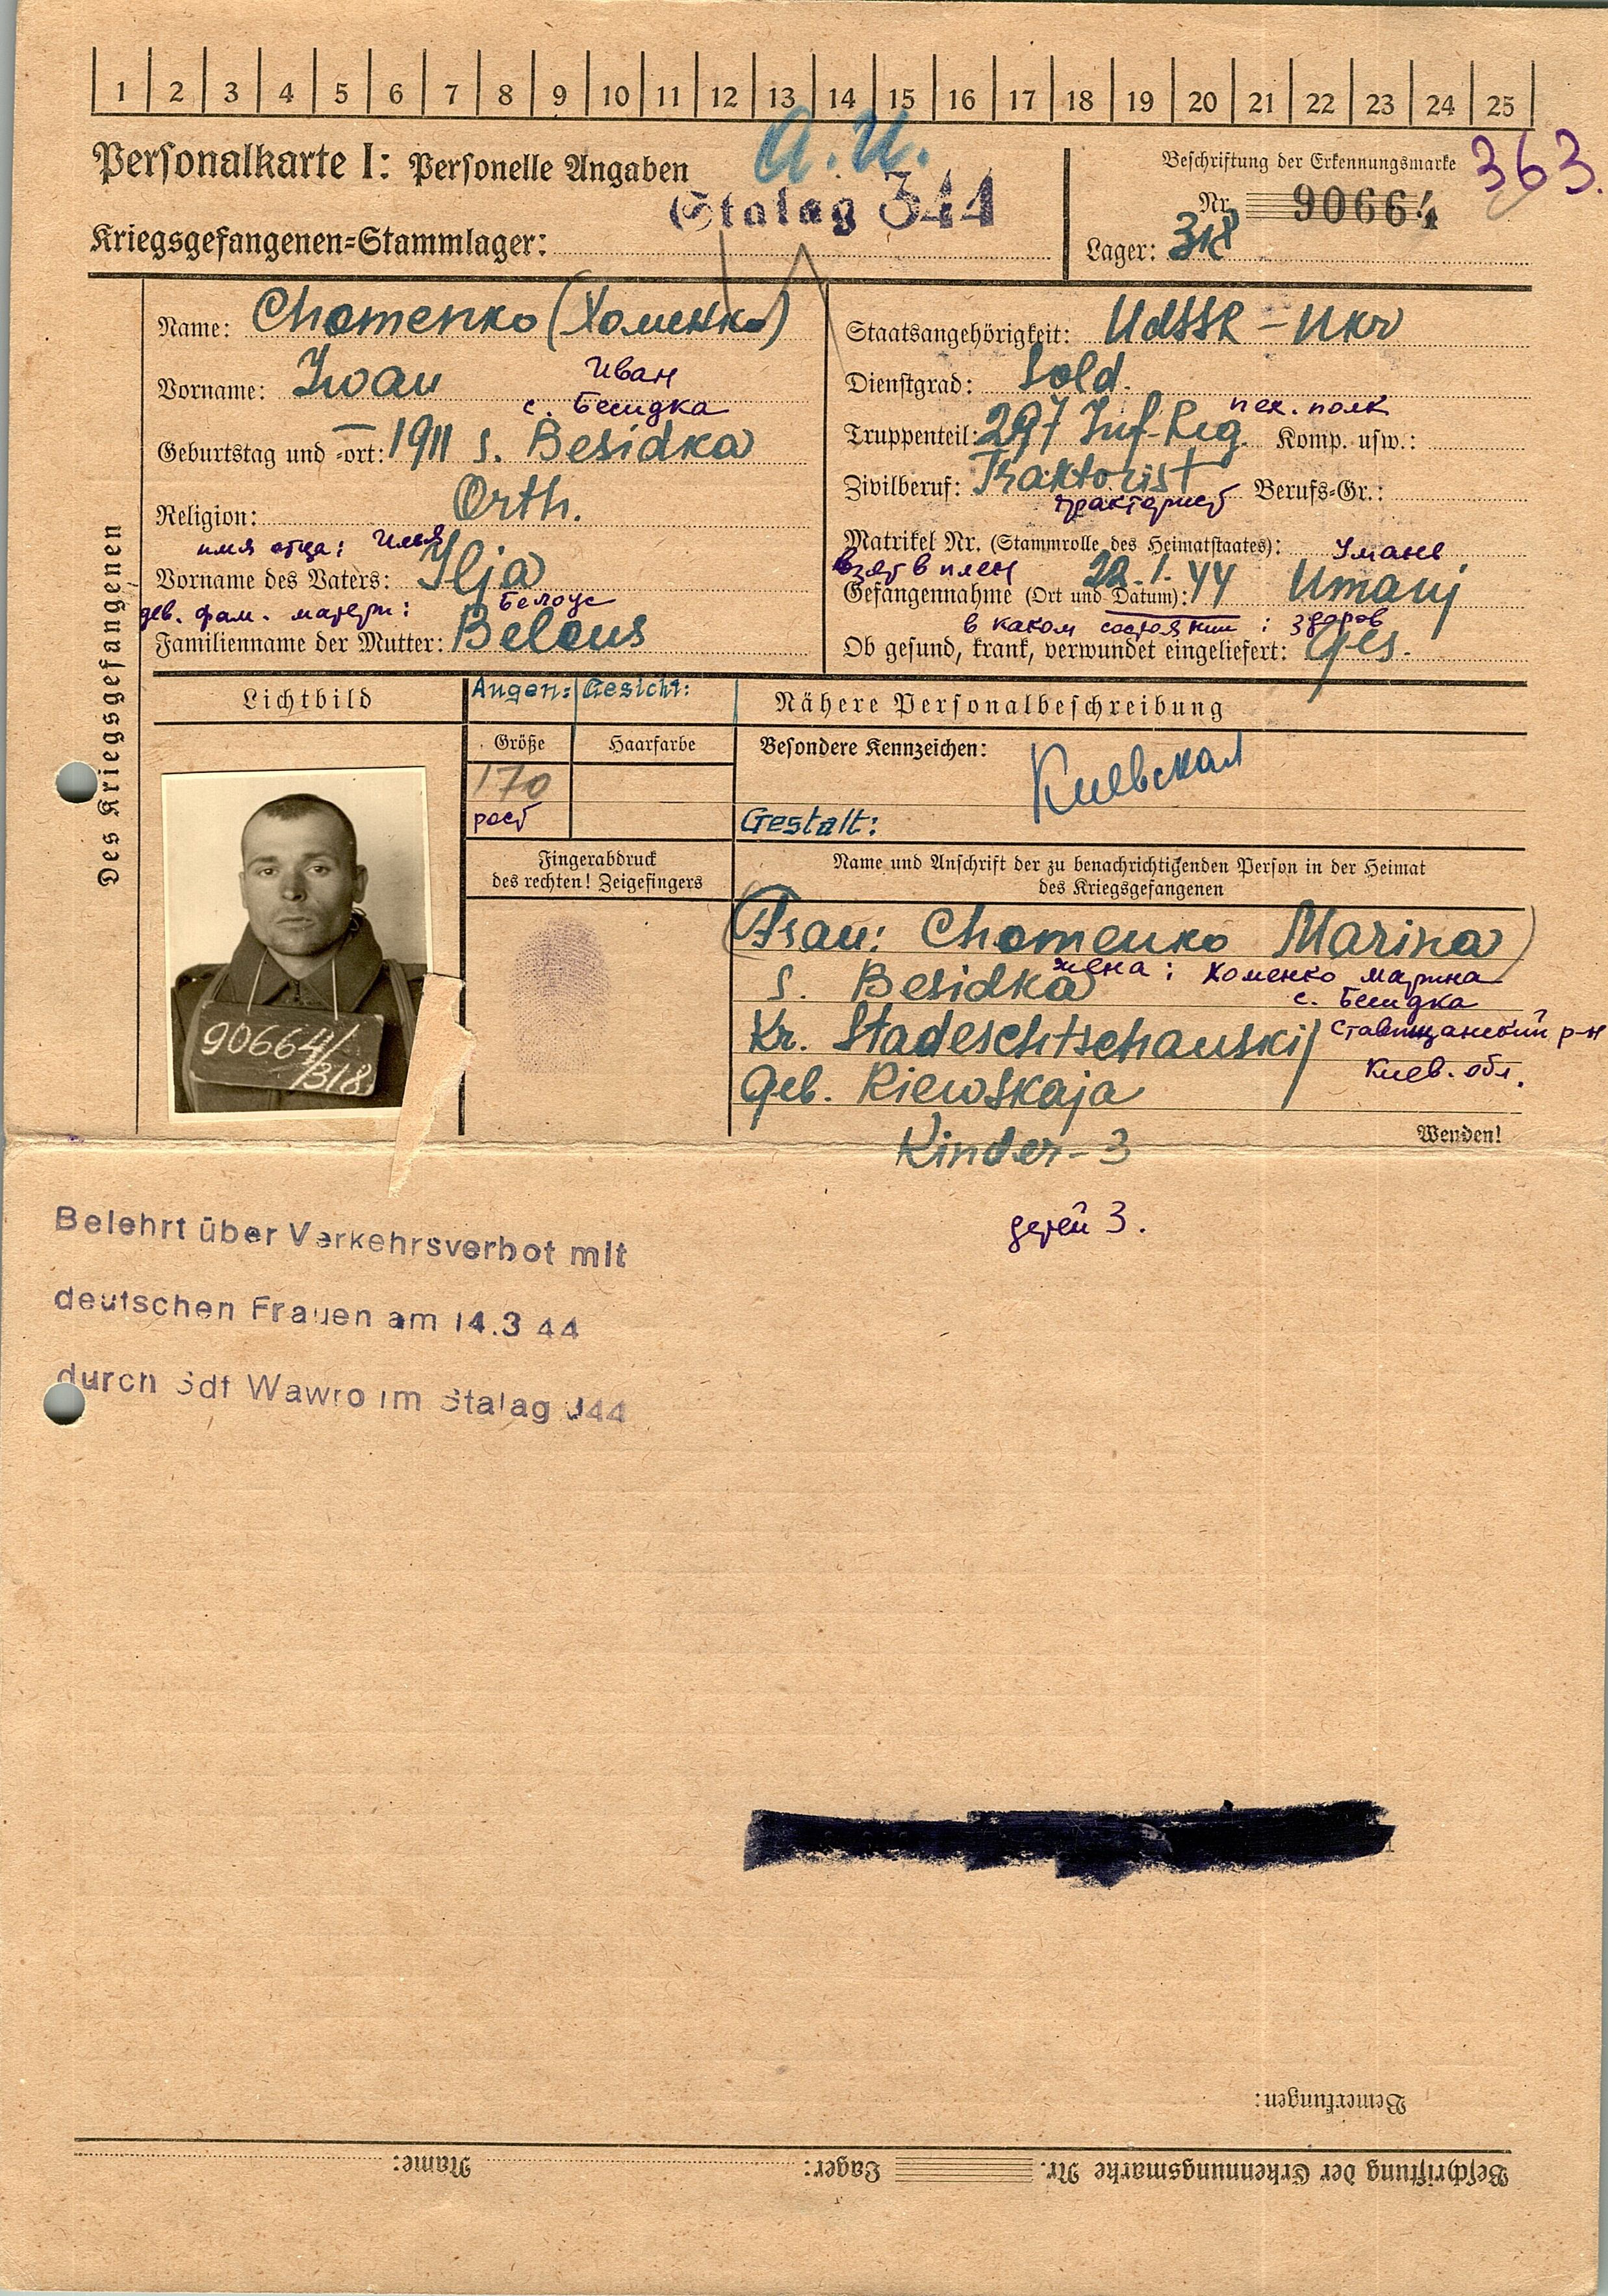 1 2 3 4 5 6 7 8 9 10 11 12 13 14 15 16 17 18 19 20 21 22 23 24 25
Personalkarte I: Personelle Angaben
A.U.
Stalag 344
Kriegsgefangenen-Stammlager:
Beschriftung der Erkennungsmarke
363.
Nr. 90664
Lager: 318
Des Kriegsgefangenen
Name: Chomenko (Хоменко)
Vorname: Iwan Иван
с. Бесидка
Geburtstag und -ort: 1911 s. Besidka
Religion: Orth.
имя отца: Илья
Vorname des Vaters: Ilja
дев. фам. матери: Белоус
Familienname der Mutter: Belous
Staatsangehörigkeit: UdSSR - Ukr
Dienstgrad: Sold.
пех. полк
Truppenteil: 297 Inf-Reg. Komp. usw.:
Zivilberuf: Traktorist Berufs-Gr.:
тракторист
Matrikel Nr. (Stammrolle des Heimatstaates):
взят в плен Умань
Gefangennahme (Ort und Datum): 22.1.44 Umanj
в каком состоянии: здоров
Ob gesund, krank, verwundet eingeliefert: Ges.
Lichtbild
Augen: Gesicht:
Nähere Personalbeschreibung
Größe Haarfarbe
170
рост
Besondere Kennzeichen:
Киевская
Gestalt:
Fingerabdruck
des rechten! Zeigefingers
Name und Anschrift der zu benachrichtigenden Person in der Heimat
des Kriegsgefangenen
90664/
/318
Frau: Chomenko Marina
жена: Хоменко Марина
s. Besidka
с. Бесидка
Kr. Stadeschtschanskij
Ставищанский р-н
Geb. Kiewskaja
Киев. обл.
Kinder-3
Wenden!
детей 3.
Belehrt über Verkehrsverbot mit
deutschen Frauen am 14.3 44
durch Sdf Wawro im Stalag 344
Bemerkungen:
Beschriftung der Erkennungsmarke Nr. Lager: Name: